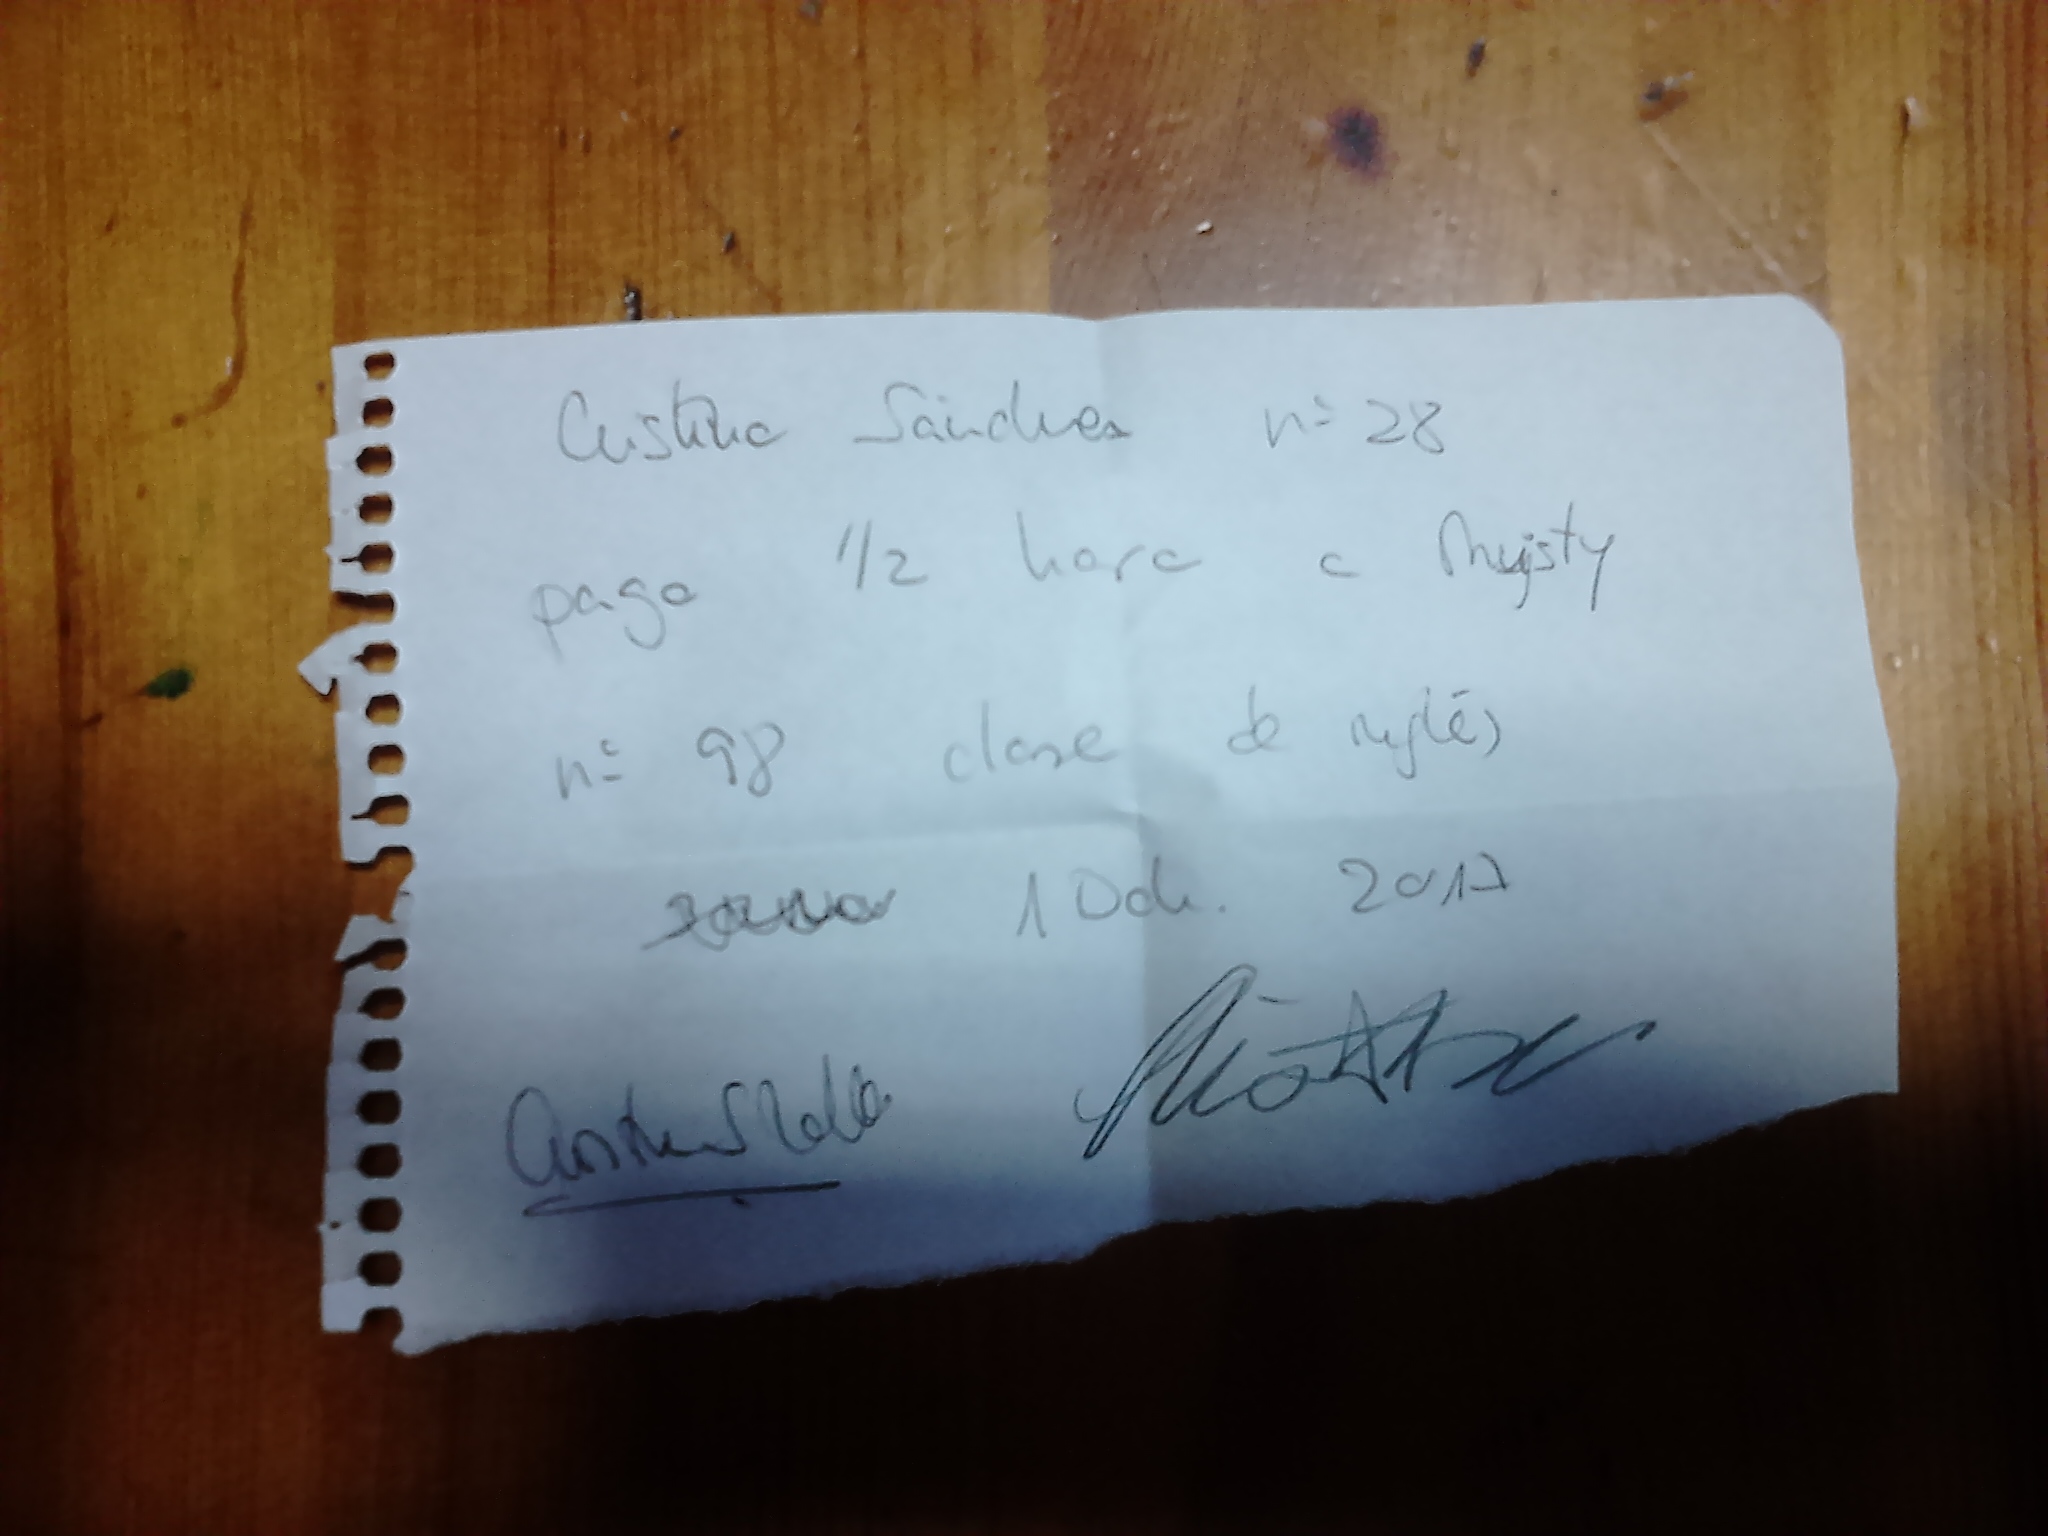 Cristina Sánchez nº 28
paga 1/2 hora a
nº 98 clase de inglés
1 Oct. 2017